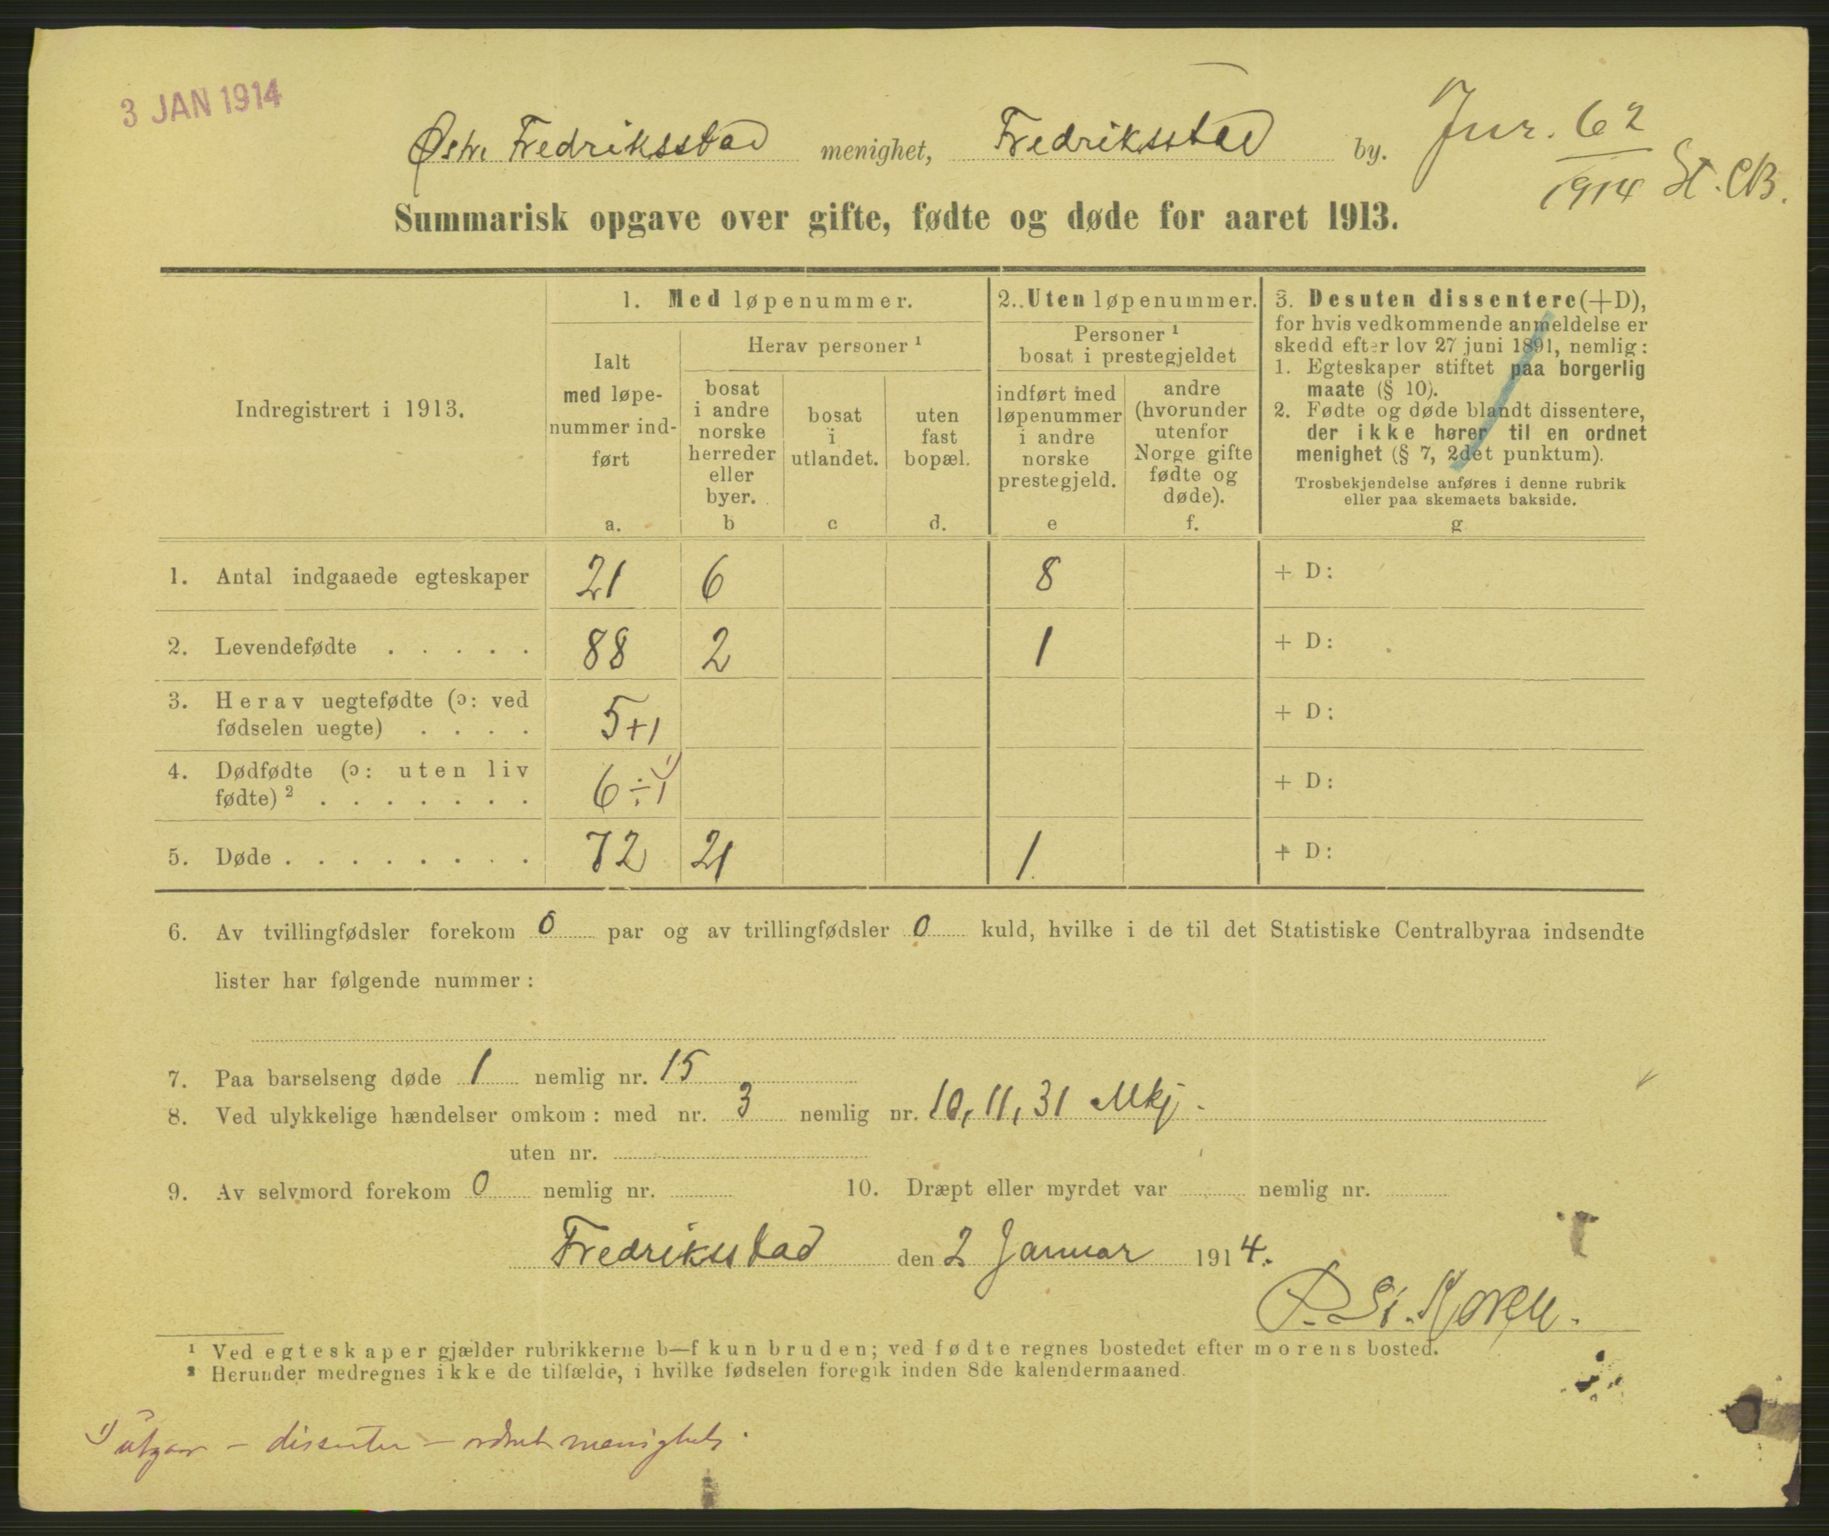 3 JAN 1914
Østre Fredriksstad menighet, Fredriksstad by.
Jnr. 62
1914 St. CB.
Summarisk opgave over gifte, fødte og døde for aaret 1913.
Indregistrert i 1913.
1. Med løpenummer.
Ialt
med løpe-
nummer ind-
ført
a.
Herav personer ¹
bosat
i andre
norske
herreder
eller
byer.
b
bosat
i
utlandet.
c
uten
fast
bopæl.
d.
2. Uten løpenummer.
Personer ¹
bosat i prestegjeldet
indført med
løpenummer
i andre
norske
prestegjeld.
e
andre
(hvorunder
utenfor
Norge gifte
fødte og
døde).
f.
3. Desuten dissentere (+D),
for hvis vedkommende anmeldelse er
skedd efter lov 27 juni 1891, nemlig:
1. Egteskaper stiftet paa borgerlig
maate (§ 10).
2. Fødte og døde blandt dissentere,
der ikke hører til en ordnet
menighet (§ 7, 2det punktum).
Trosbekjendelse anføres i denne rubrik
eller paa skemaets bakside.
g
1. Antal indgaaede egteskaper 21 6 8 + D:
2. Levendefødte . . . . . 88 2 1 + D:
3. Herav uegtefødte (ɔ: ved
fødselen uegte) . . . . 5+1 + D:
4. Dødfødte (ɔ: uten liv
fødte) ² . . . . . . . 6÷1 ¹) + D:
5. Døde . . . . . . . . 72 21 1 + D:
6. Av tvillingfødsler forekom 0 par og av trillingfødsler 0 kuld, hvilke i de til det Statistiske Centralbyraa indsendte
lister har følgende nummer:
7. Paa barselseng døde 1 nemlig nr. 15
8. Ved ulykkelige hændelser omkom: med nr. 3 nemlig nr. 10, 11, 31 Mkj.
uten nr.
9. Av selvmord forekom 0 nemlig nr. 10. Dræpt eller myrdet var nemlig nr.
Fredriksstad den 2 Januar 1914.
P. St. Koren.
¹ Ved egteskaper gjælder rubrikkerne b—f kun bruden; ved fødte regnes bostedet efter morens bosted.
² Herunder medregnes ikke de tilfælde, i hvilke fødselen foregik inden 8de kalendermaaned.
¹) utgaar – dissenter – ordnet menighet.